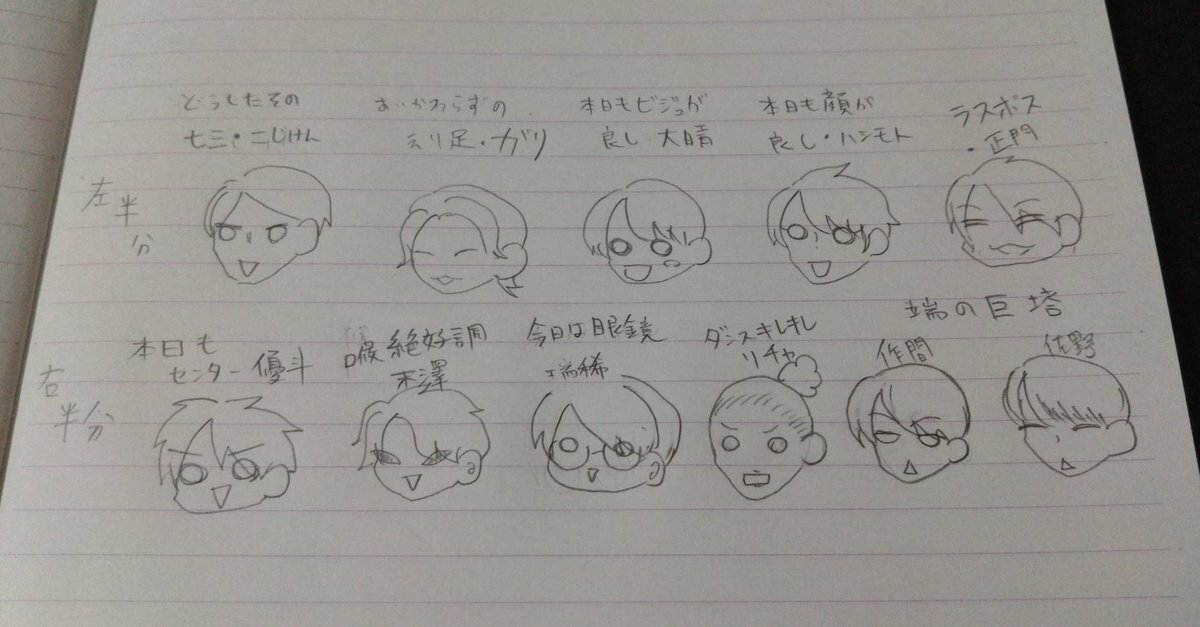 左半分
どうしたその
七三・こじけん
あいかわらずの
えり足・ガリ
本日もビジュが
良し 大晴
本日も顔が
良し・ハシモト
ラスボス
・正門
右半分
本日も
センター優斗
喉絶好調
末澤
今日は眼鏡
瑞稀
ダンスキレキレ
リチャ
端の巨塔
作間
佐野